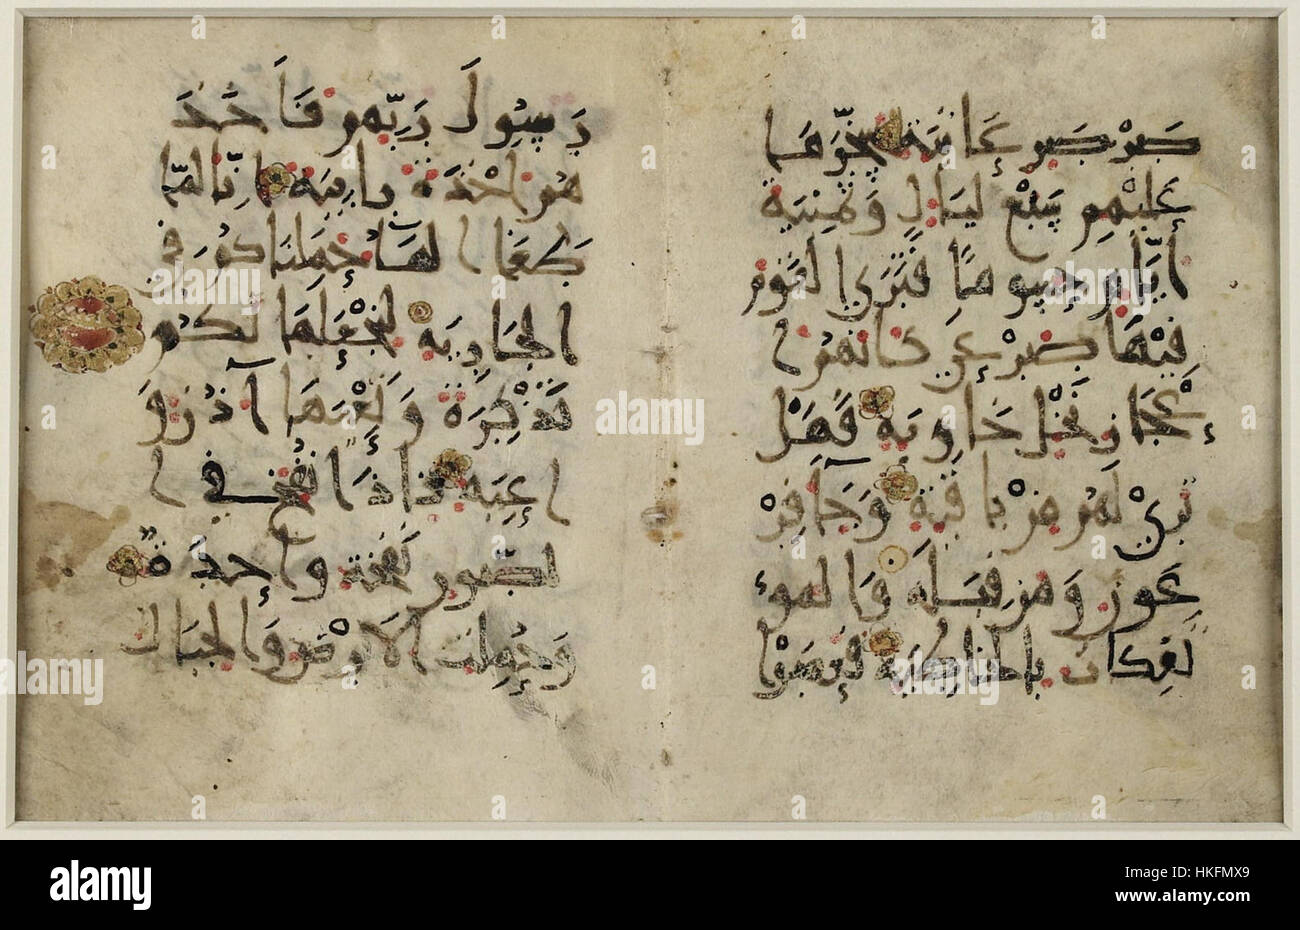 صَرْصَرٍ عَاتِيَةٍ سَخَّرَهَا
عَلَيْهِمْ سَبْعَ لَيَالٍ وَثَمَنِيَةَ
أَيَّامٍ حُسُومًا فَتَرَى الْقَوْمَ
فِيهَا صَرْعَى كَأَنَّهُمْ أَ
عْجَازُ نَخْلٍ خَاوِيَةٍ فَهَلْ
تَرَى لَهُمْ مِنْ بَاقِيَةٍ وَجَا فِرْ
عَوْنُ وَمَنْ قَبْلَهُ وَالْمُؤْ
تَفِكَاتُ بِالْخَاطِئَةِ فَعَصَوْا
رَسُولَ رَبِّهِمْ فَأَخَذَ
هُمْ أَخْذَةً رَابِيَةً إِنَّا لَمَّا
طَغَا الْمَا حَمَلْنَاكُمْ فِي
الْجَارِيَةِ لِنَجْعَلَهَا لَكُمْ
تَذْكِرَةً وَتَعِيَهَا أُذُنٌ وَ
اعِيَةٌ فَإِذَا نُفِخَ فِي ا
لصُّورِ نَفْخَةٌ وَاحِدَةٌ
وَحُمِلَتِ الْأَرْضُ وَالْجِبَالُ
alamy
Image ID: HKFMX9
www.alamy.com